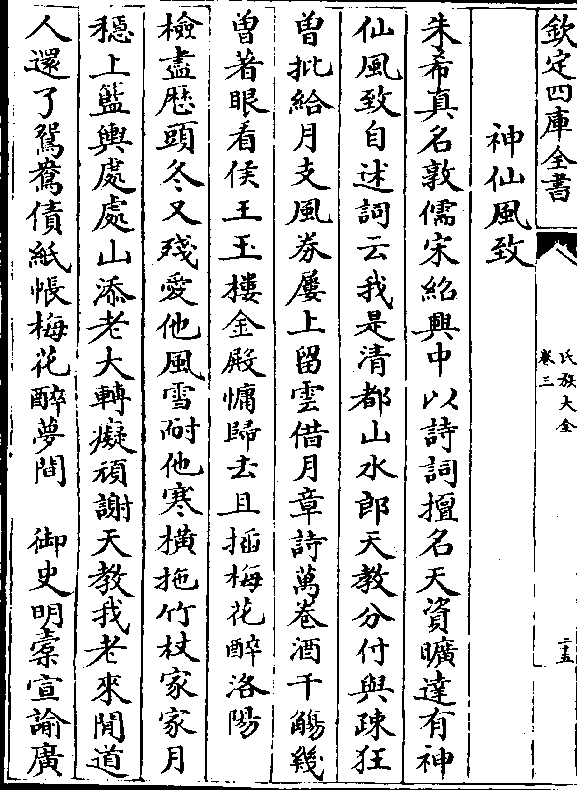 欽定四庫全書
氏族大全
卷三
二五
神仙風致
朱希真名敦儒宋紹興中以詩詞擅名天資曠達有神
仙風致自述詞云我是清都山水郎天教分付與疎狂
曽批給月支風券屢上留雲借月章詩萬卷酒千觴幾
曽著眼看侯王玉樓金殿慵歸去且揷梅花醉洛陽
檢盡厯頭冬又殘愛他風雪耐他寒横拖竹杖家家月
穏上籃輿處處山添老大轉癡頑謝天教我老來閒道
人還了鴛鴦債紙帳梅花醉夢間　御史明槖宣諭廣